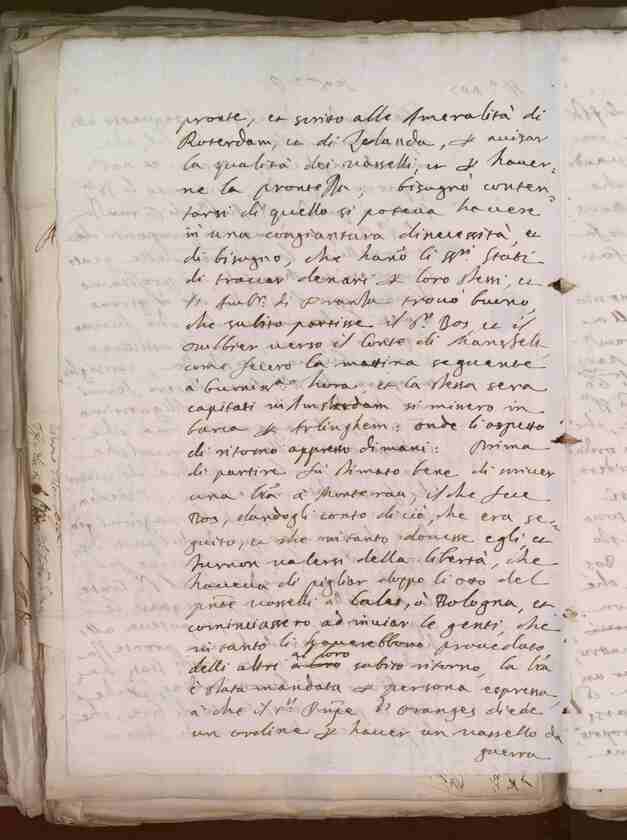 pronte, et scritto alle Ameralità di
Roterdam, et di Zelanda, & avisar
la qualità dei vasselli, et & haver-
ne la prontezza; bisognò conten-
tarsi di quello si poteva havere
in una congiantura di necessità, et
di bisogno, che hanno li ssri Stati
di trovar denari & loro stessi, et
di Franza trovò bueno,
che subito partisse il Sr Bos, et il
verso il Conte di Mansfelt
come fecero la mattina seguente
à bonissa hora et la stessa sera
capitati in Amsterdam si misero in
barca & Arlinghem: onde li aspetto
di ritorno appresso dimani: Prima
di partire fù stimato bene di scriver
una lra à Monterau, il che fece
Bos, dandogli conto di ciò, che era se-
guito, et che intanto dovesse egli et
Jurnon valersi della libertà, che
haveva di pigliar doppo li otto del
vasselli à Cales, ò Bologna, et
cominciassero ad inviar le genti, che
intanto li haverebbono proveduto
delli altri al loro subito ritorno, la lra
è stata mandata & persona espressa,
à che il sr Prñpe di Oranges diede
un ordine & haver un vassello da
guerra